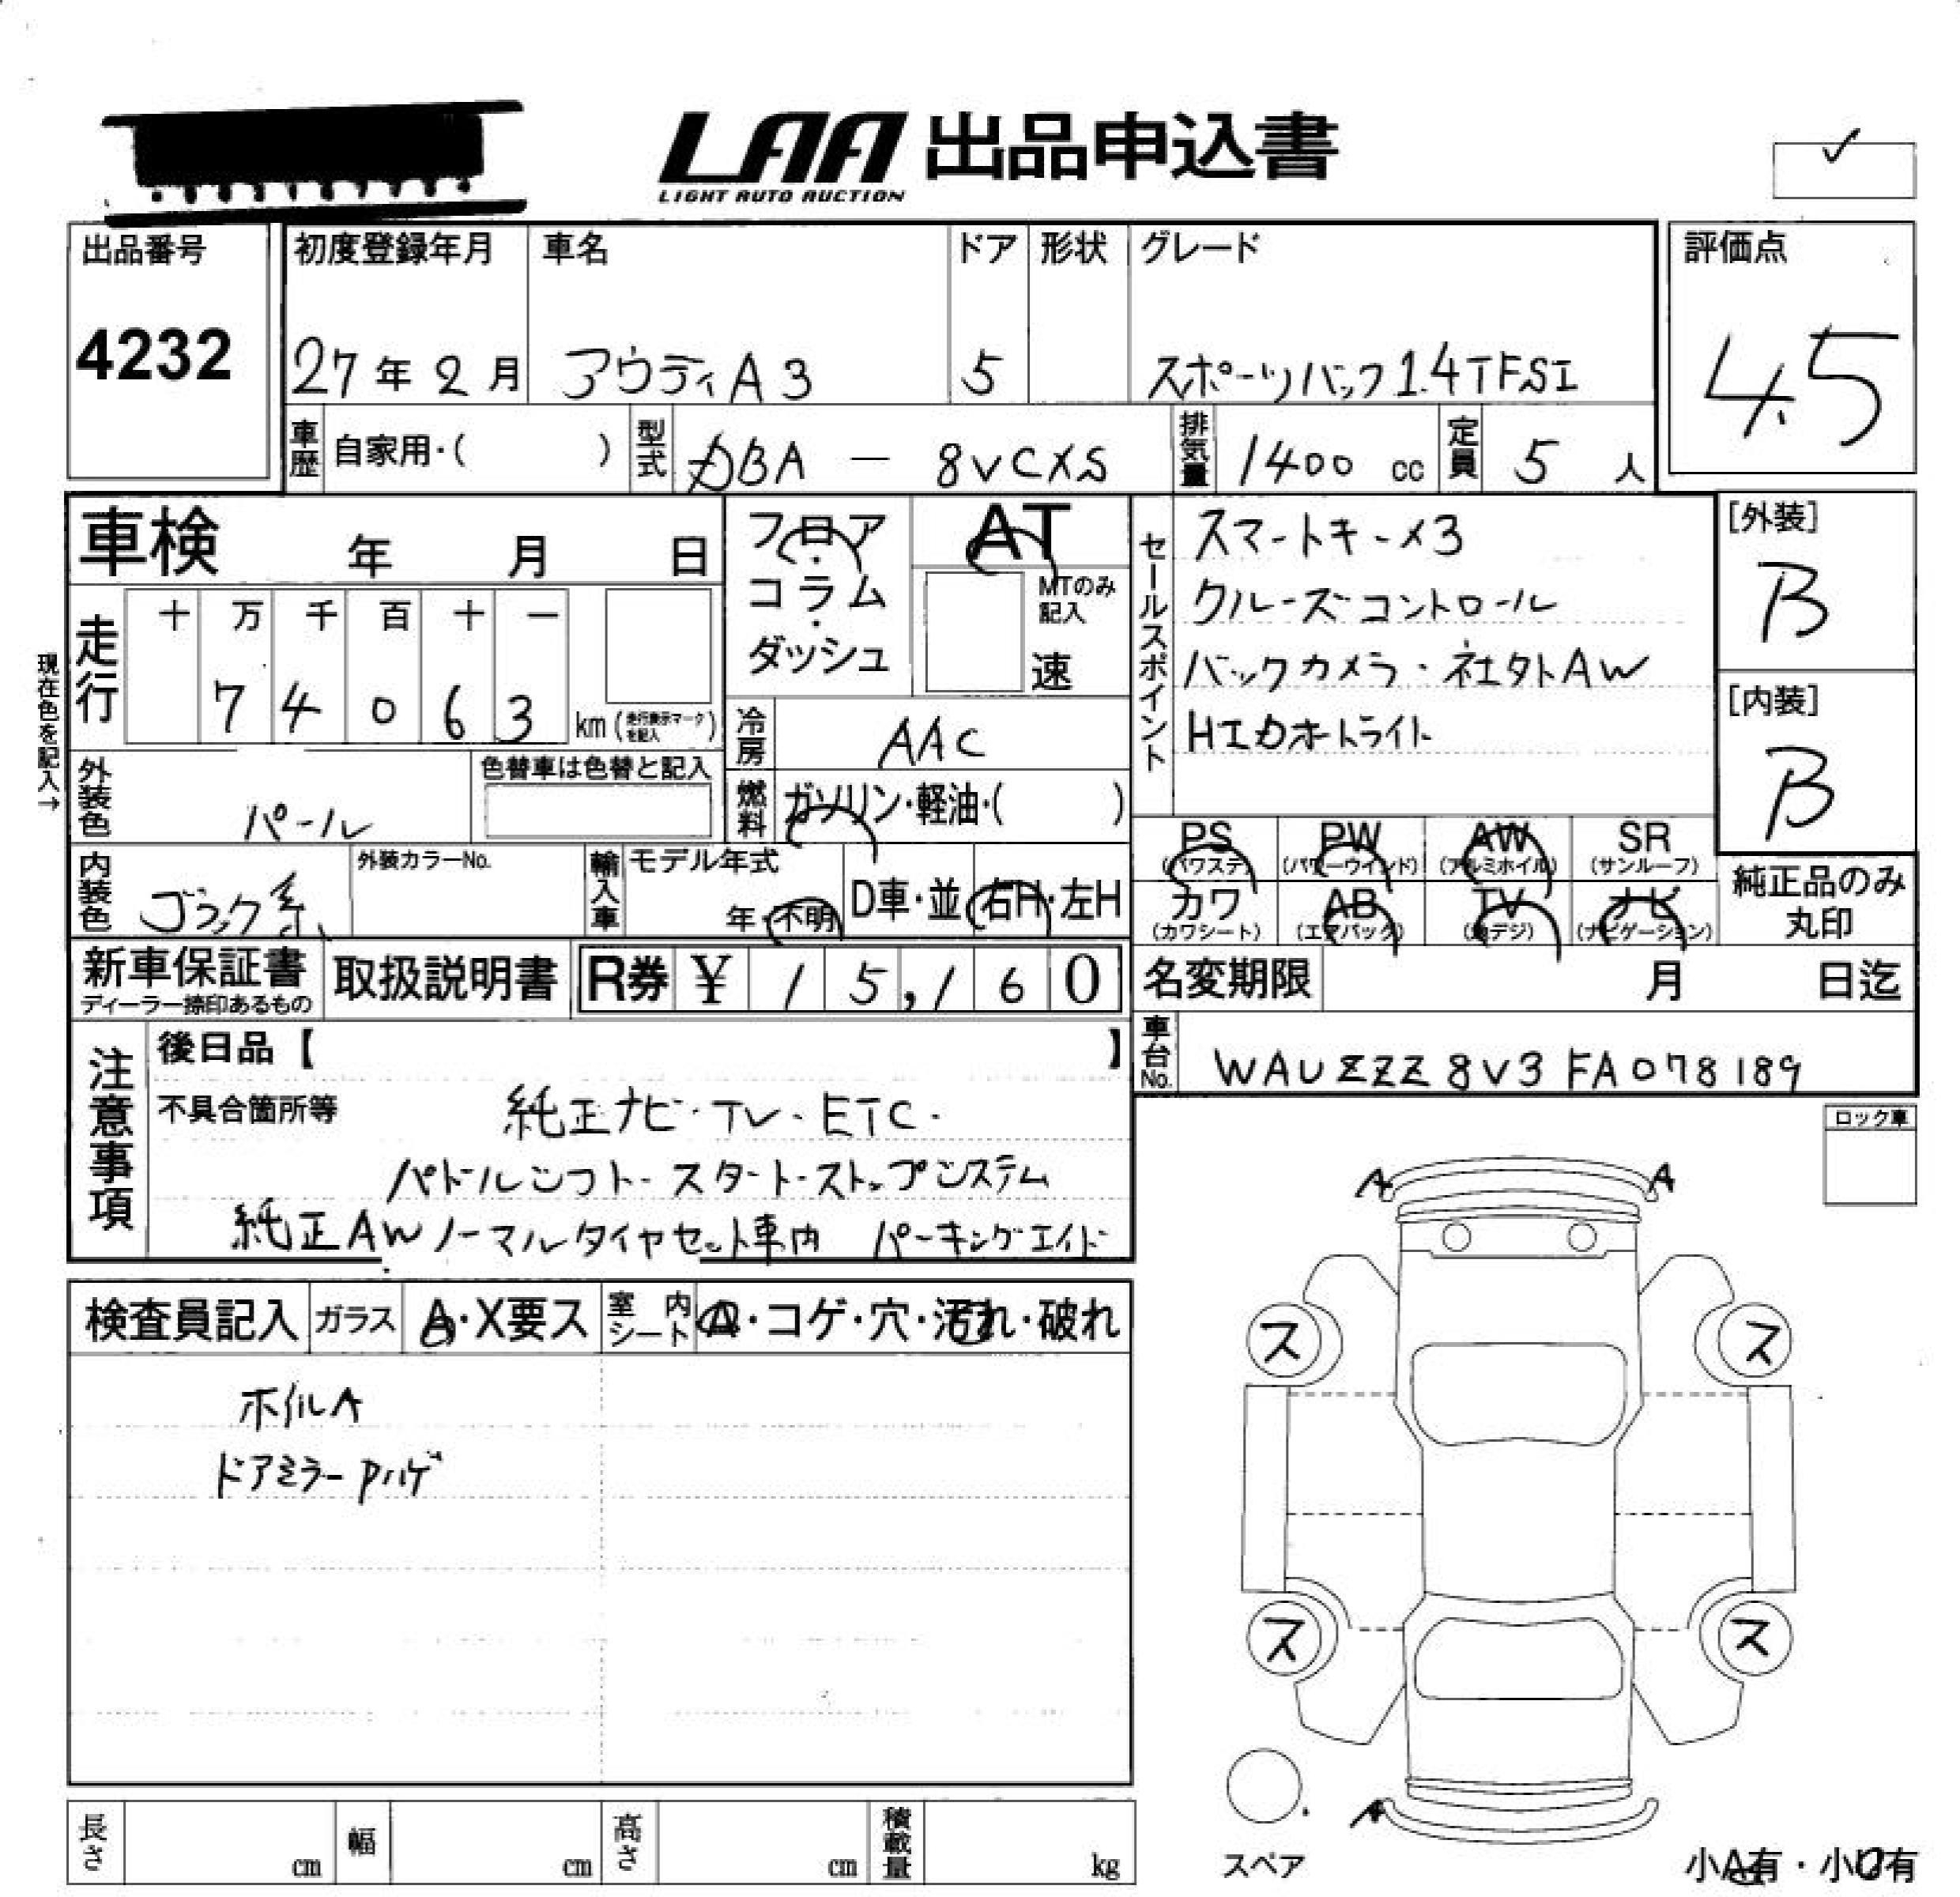 LAA 出品申込書
LIGHT AUTO AUCTION
出品番号
4232
初度登録年月
27年2月
車名
アウディA3
ドア
5
形状
グレード
スポーツバック1.4TFSI
評価点
4.5
車歴
自家用・( )
型式
DBA - 8VCXS
排気量
1400 cc
定員
5 人
車検 年 月 日
フロア・コラム・ダッシュ
AT
MTのみ記入
速
セールスポイント
スマートキー×3
クルーズコントロール
バックカメラ・社外AW
HIDオートライト
[外装]
B
[内装]
B
現在色を記入→
走行
十 万 千 百 十 一
7 4 0 6 3 km (走行表示マークを記入)
冷房
AAC
外装色
パール
色替車は色替と記入
燃料
ガソリン・軽油・( )
PS (パワステ)
PW (パワーウインド)
AW (アルミホイル)
SR (サンルーフ)
カワ (カワシート)
AB (エアバック)
TV (地デジ)
ナビ (ナビゲーション)
純正品のみ丸印
内装色
ブラック系
外装カラーNo.
輸入車
モデル年式
年・不明
D車・並
右H・左H
新車保証書
ディーラー捺印あるもの
取扱説明書
R券 ¥ 15,160
名変期限 月 日迄
車台No.
WAUZZZ8V3FA078189
注意事項
後日品【 】
不具合箇所等
純正ナビ・TV・ETC・
パドルシフト・スタートストップシステム
純正AWノーマルタイヤセット車内 パーキングエイド
ロック車
A A
検査員記入
ガラス
A・X要ス
室内シート
A・コゲ・穴・汚れ・破れ
ホイルA
ドアミラーPハゲ
ス ス
ス ス
A
スペア
小A有・小U有
長さ cm
幅 cm
高さ cm
積載量 kg